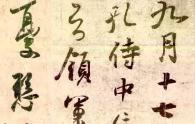 九月十七
孔侍中信
領軍
憂懸